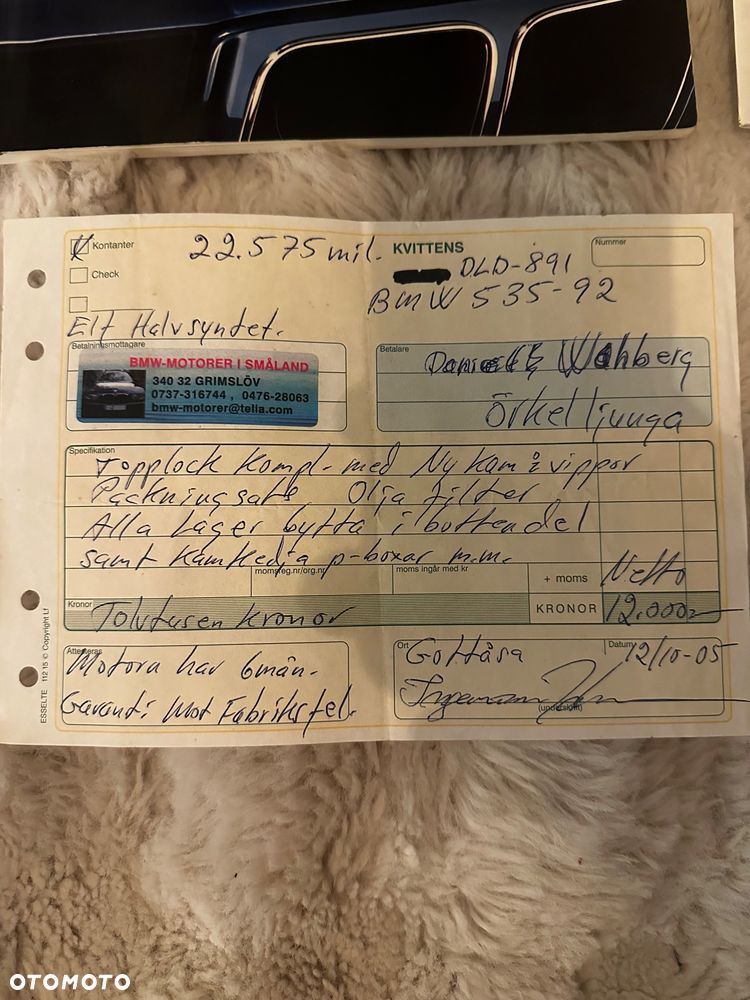 Kontanter
22.575 mil.
KVITTENS
Nummer
Check
DLD-891
BMW 535-92
Elf Halvsyntet.
Betalningsmottagare
BMW-MOTORER I SMÅLAND
340 32 GRIMSLÖV
0737-316744 , 0476-28063
bmw-motorer@telia.com
Betalare
Wahberg
Örkelljunga
Specifikation
Topplock Kompl- med Ny kam & vippor
Packningsats Olja filter
Alla Lager bytta i bottendel
samt Kamkedja p-boxar m.m.
momsreg.nr/org.nr
moms ingår med kr
+ moms
Netto
Kronor
Tolvtusen Kronor
KRONOR
12.000:-
Attesteras
Motorn har 6mån.
Garanti Mot Fabriksfel.
Ort
Gottåsa
Datum
12/10-05
Ingemar
(underskrift)
ESSELTE 112 15 © Copyright Lf
OTOMOTO